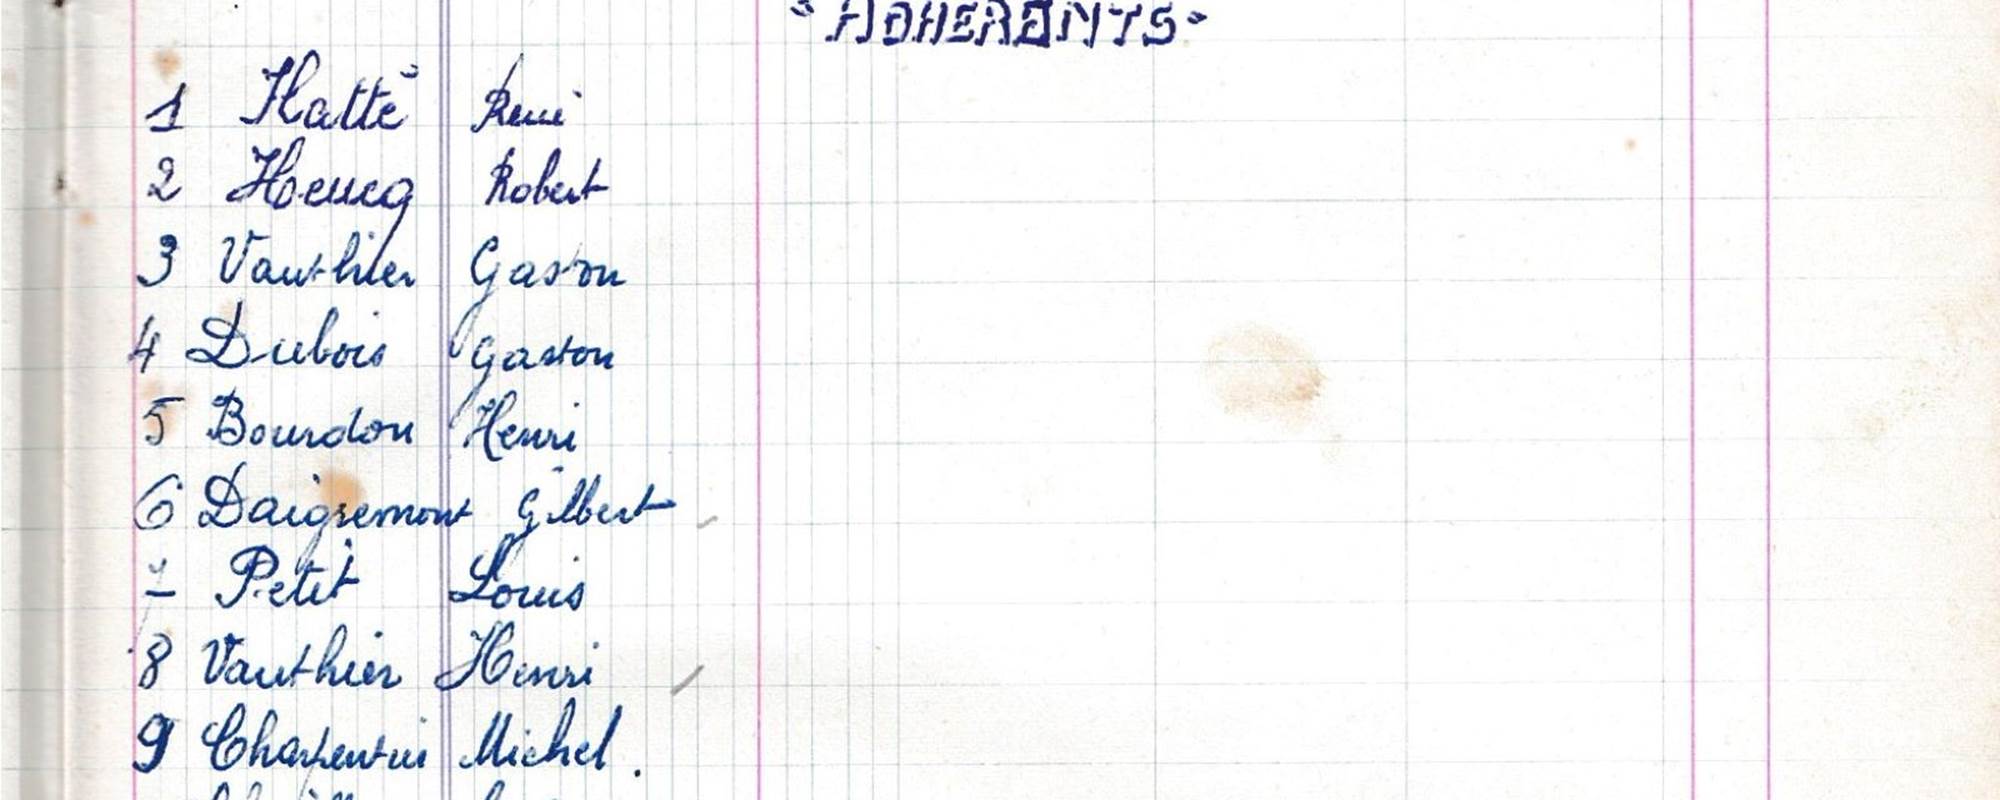 "ADHERENTS"
1 Hatté René
2 Heucq Robert
3 Vauthier Gaston
4 Dubois Gaston
5 Bourdon Henri
6 Daigremont Gilbert
7 Petit Louis
8 Vauthier Henri
9 Charpentier Michel.